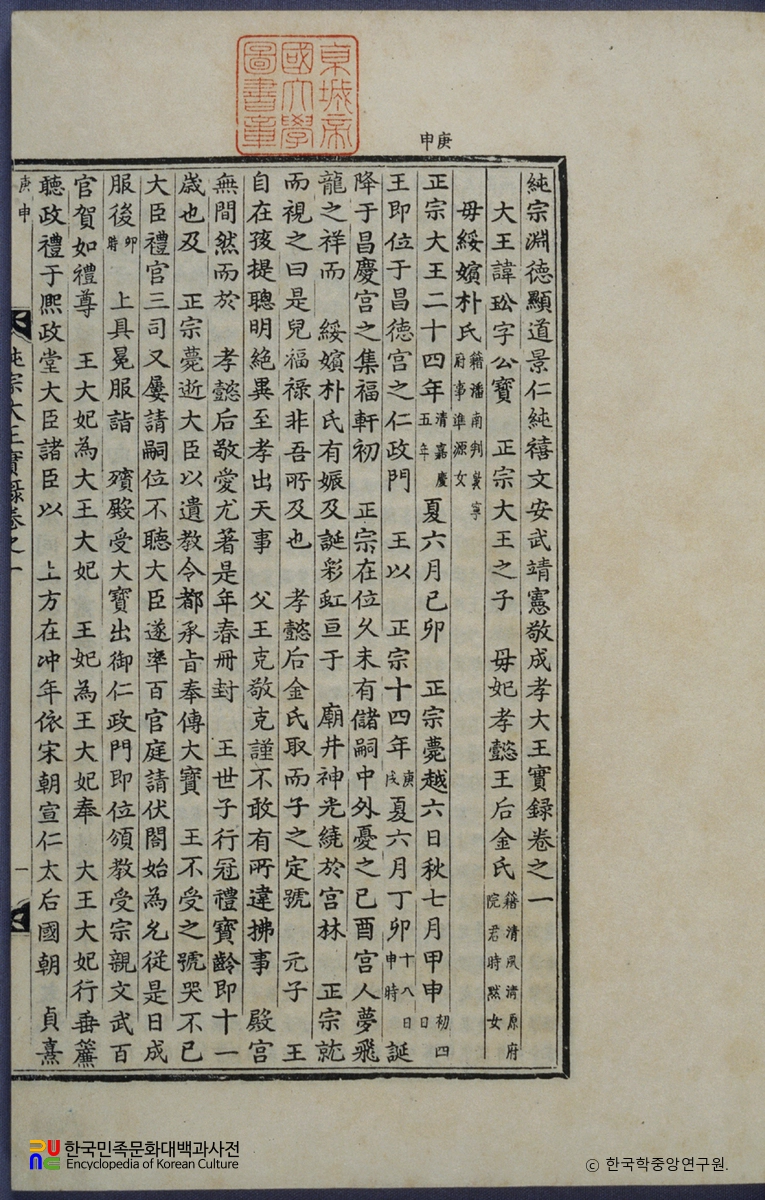 庚申
京城帝
國大學
圖書章
純宗淵德顯道景仁純禧文安武靖憲敬成孝大王實錄卷之一
大王諱玜字公寶 正宗大王之子 母妃孝懿王后金氏籍清風清原府院君時默女
母綏嬪朴氏籍潘南判敦寧府事準源女
正宗大王二十四年清嘉慶五年夏六月己卯 正宗薨越六日秋七月甲申初四日
王即位于昌德宮之仁政門 王以 正宗十四年庚戌夏六月丁卯十八日申時誕
降于昌慶宮之集福軒初 正宗在位久未有儲嗣中外憂之己酉宮人夢飛
龍之祥而 綏嬪朴氏有娠及誕彩虹亘于 廟井神光繞於宮林 正宗就
而視之曰是兒福祿非吾所及也 孝懿后金氏取而子之定號 元子 王
自在孩提聰明絶異至孝出天事 父王克敬克謹不敢有所違拂事 殿宮
無間然而於 孝懿后敬愛尤著是年春冊封 王世子行冠禮寶齡即十一
歲也及 正宗薨逝大臣以遺教令都承旨奉傳大寶 王不受之號哭不已
大臣禮官三司又屢請嗣位不聽大臣遂率百官庭請伏閤始爲允從是日成
服後卯時 上具冕服詣 殯殿受大寶出御仁政門即位頒教受宗親文武百
官賀如禮尊 王大妃爲大王大妃 王妃爲王大妃奉 大王大妃行垂簾
聽政禮于熙政堂大臣諸臣以 上方在冲年依宋朝宣仁太后國朝 貞熹
庚申
純宗大王實錄卷之一
一
한국민족문화대백과사전
Encyclopedia of Korean Culture
ⓒ 한국학중앙연구원.